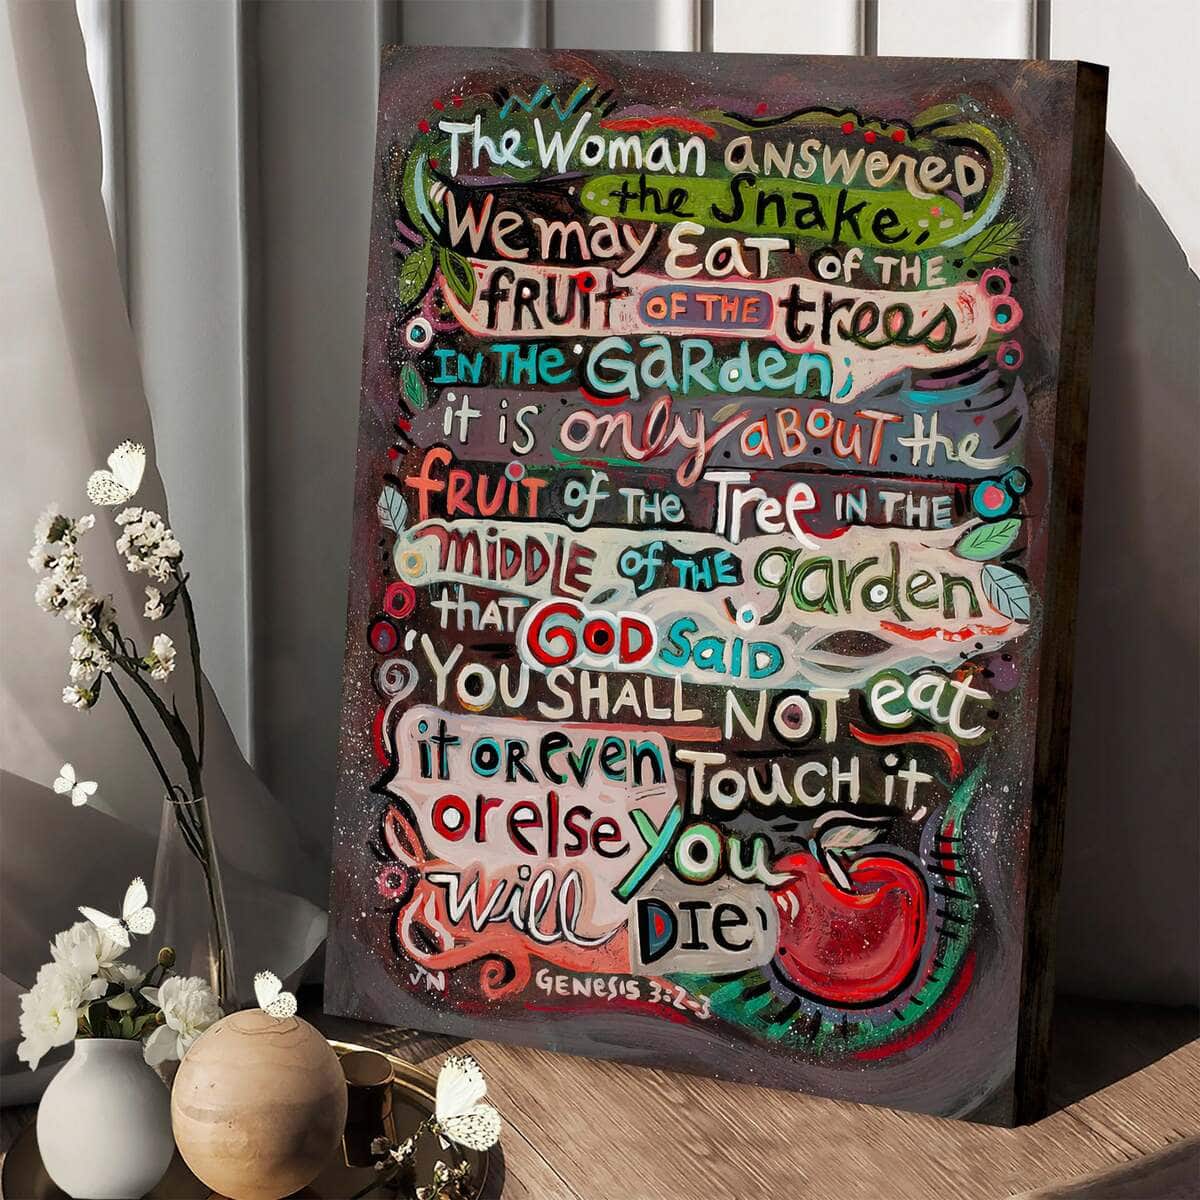 The Woman answered
the Snake,
"We may Eat of the
fruit of the trees
in the Garden;
it is only about the
fruit of the Tree in the
middle of the garden
that God said
'You shall not eat
it or even Touch it,
or else you
will DIE'
JN Genesis 3:2-3